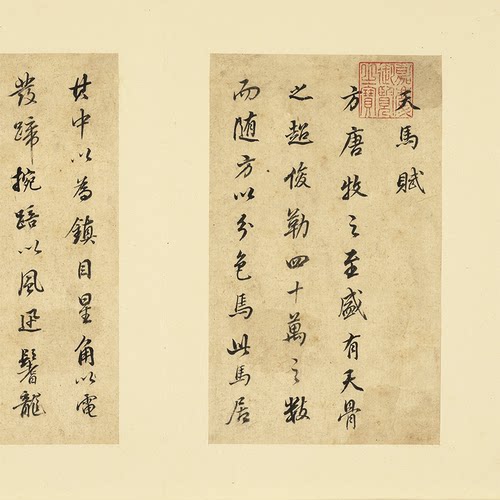 嘉慶
御覽
之寶
天馬賦
方唐牧之至盛有天骨
之超俊勒四十萬之數
而随方以分色焉此馬居
其中以為鎮目星角以電
發蹄椀踣以風迅鬐龍